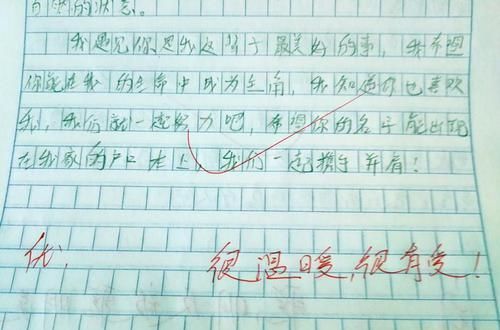 的状态。
我遇见你是我这辈子最美好的事，我希望
你能在我的生命中成为主角，我知道你也喜欢
我，我们就一起努力吧，希望你的名字能出现
在我家的户口本上，我们一起携手并肩！
优. 很温暖，很有爱！